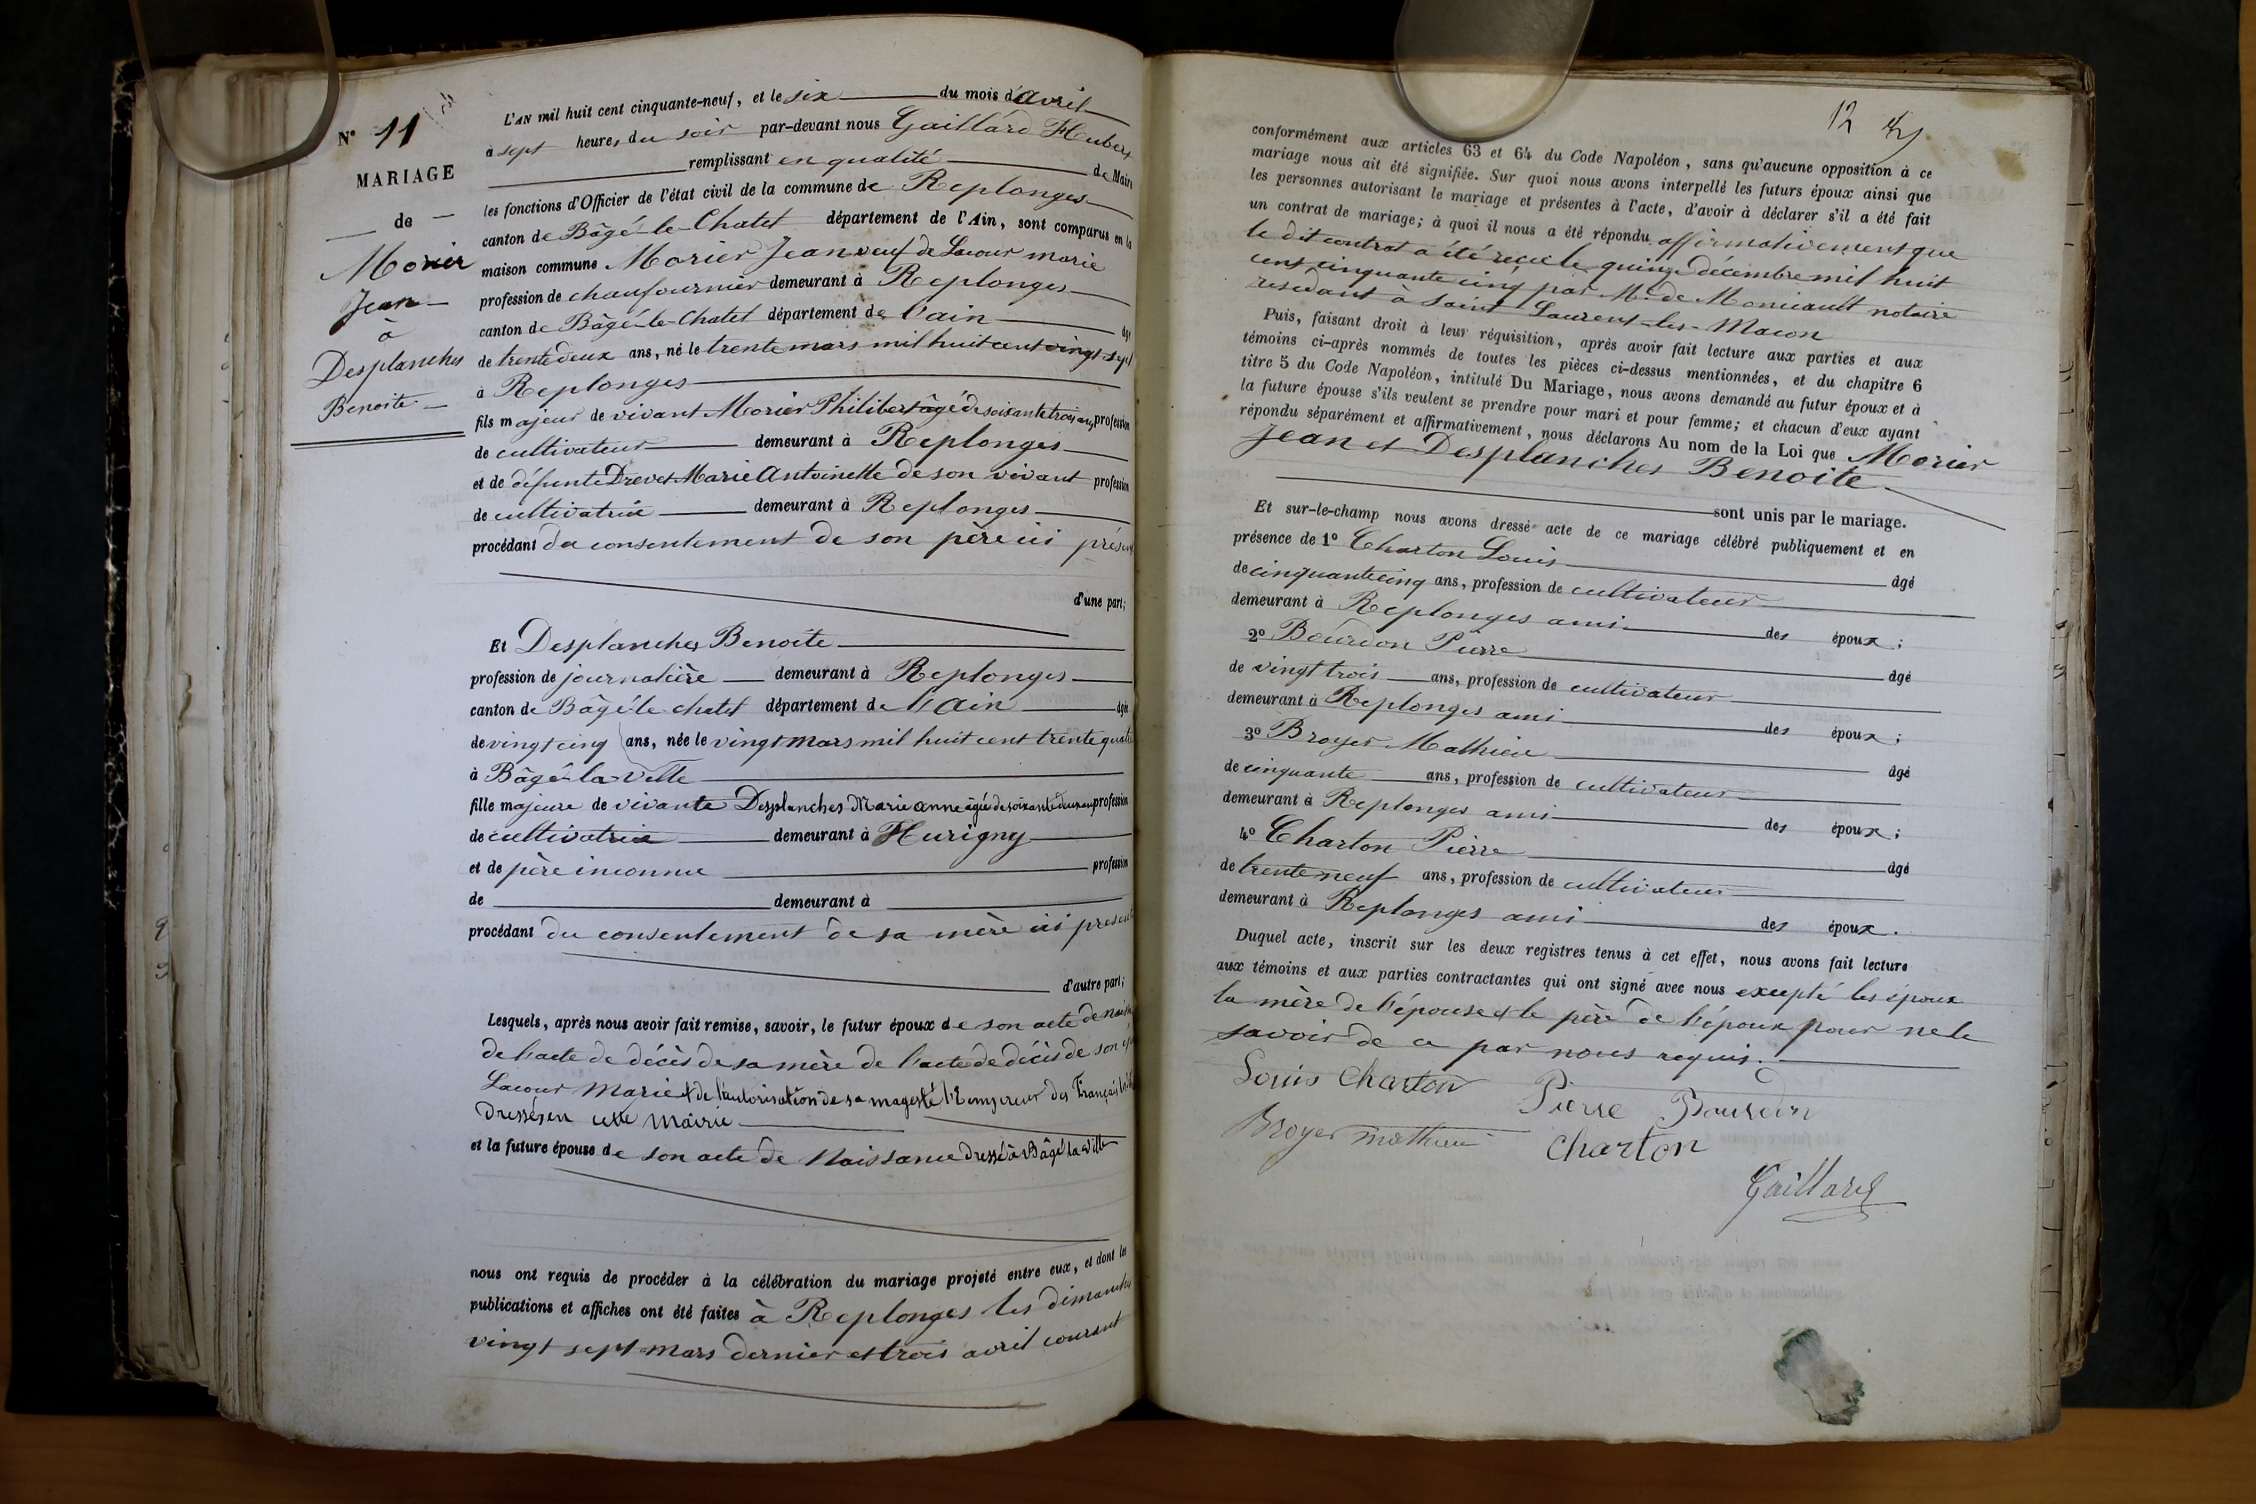 N° 11
MARIAGE
de
Morier
Jean
à
Desplanches
Benoite
L'AN mil huit cent cinquante-neuf, et le six du mois d'avril
à sept heures du soir par-devant nous Gaillard Hubert
remplissant en qualité de Maire
les fonctions d'Officier de l'état civil de la commune de Replonges
canton de Bâgé-le-Chatel département de l'Ain, sont comparus en la
maison commune Morier Jean veuf de Lacour marie
profession de chaufournier demeurant à Replonges
canton de Bâgé-le-Chatel département de l'ain âgé
de trente deux ans, né le trente mars mil huit cent vingt-sept
à Replonges
fils majeur de vivant Morier Philibert âgé de soixante trois ans profession
de cultivateur demeurant à Replonges
et de défunte Drevet Marie Antoinette de son vivant profession
de cultivatrice demeurant à Replonges
procédant du consentement de son père ici présent
d'une part;
Et Desplanches Benoite
profession de journalière demeurant à Replonges
canton de Bâgé le chatel département de l'Ain âgée
de vingt cinq ans, née le vingt mars mil huit cent trente quatre
à Bâgé-la-Ville
fille majeure de vivante Desplanches Marie anne âgée de soixante deux ans profession
de cultivatrice demeurant à Hurigny
et de père inconnu profession
de demeurant à
procédant du consentement de sa mère ici présente
d'autre part;
Lesquels, après nous avoir fait remise, savoir, le futur époux de son acte de
de l'acte de décès de sa mère de l'acte de décès de son
Lacour Marie et de l'autorisation de sa magesté l'Empereur des Français
dressés en cette Mairie
et la future épouse de son acte de Naissance dressé à Bâgé la Ville
nous ont requis de procéder à la célébration du mariage projeté entre eux, et dont les
publications et affiches ont été faites à Replonges les dimanches
vingt sept mars dernier et trois avril courant
12
conformément aux articles 63 et 64 du Code Napoléon, sans qu'aucune opposition à ce
mariage nous ait été signifiée. Sur quoi nous avons interpellé les futurs époux ainsi que
les personnes autorisant le mariage et présentes à l'acte, d'avoir à déclarer s'il a été fait
un contrat de mariage; à quoi il nous a été répondu affirmativement que
le dit contrat a été reçu le quinze décembre mil huit
cent cinquante cinq par Me de Moniault notaire
résidant à Saint Laurent-les-Macon
Puis, faisant droit à leur réquisition, après avoir fait lecture aux parties et aux
témoins ci-après nommés de toutes les pièces ci-dessus mentionnées, et du chapitre 6
titre 5 du Code Napoléon, intitulé Du Mariage, nous avons demandé au futur époux et à
la future épouse s'ils veulent se prendre pour mari et pour femme; et chacun d'eux ayant
répondu séparément et affirmativement, nous déclarons Au nom de la Loi que Morier
Jean et Desplanches Benoite
sont unis par le mariage.
Et sur-le-champ nous avons dressé acte de ce mariage célébré publiquement et en
présence de 1° Charton Louis âgé
de cinquante cinq ans, profession de cultivateur
demeurant à Replonges ami des époux;
2° Bourdon Pierre âgé
de vingt trois ans, profession de cultivateur
demeurant à Replonges ami des époux;
3° Broyer Mathieu âgé
de cinquante ans, profession de cultivateur
demeurant à Replonges ami des époux;
4° Charton Pierre âgé
de trente neuf ans, profession de cultivateur
demeurant à Replonges ami des époux.
Duquel acte, inscrit sur les deux registres tenus à cet effet, nous avons fait lecture
aux témoins et aux parties contractantes qui ont signé avec nous excepté les époux
la mère de l'épouse et le père de l'époux pour ne le
savoir de ce par nous requis.
Louis Charton
Pierre Bourdon
Broyer mathieu
Charton
Gaillard